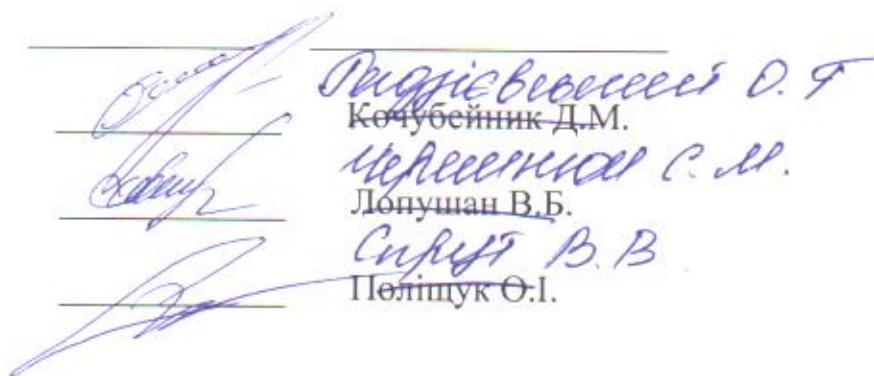 Радзієвський О. Г
Кочубейник Д.М.
С. М.
Лопушан В.Б.
Спрут В. В
Поліщук О.І.